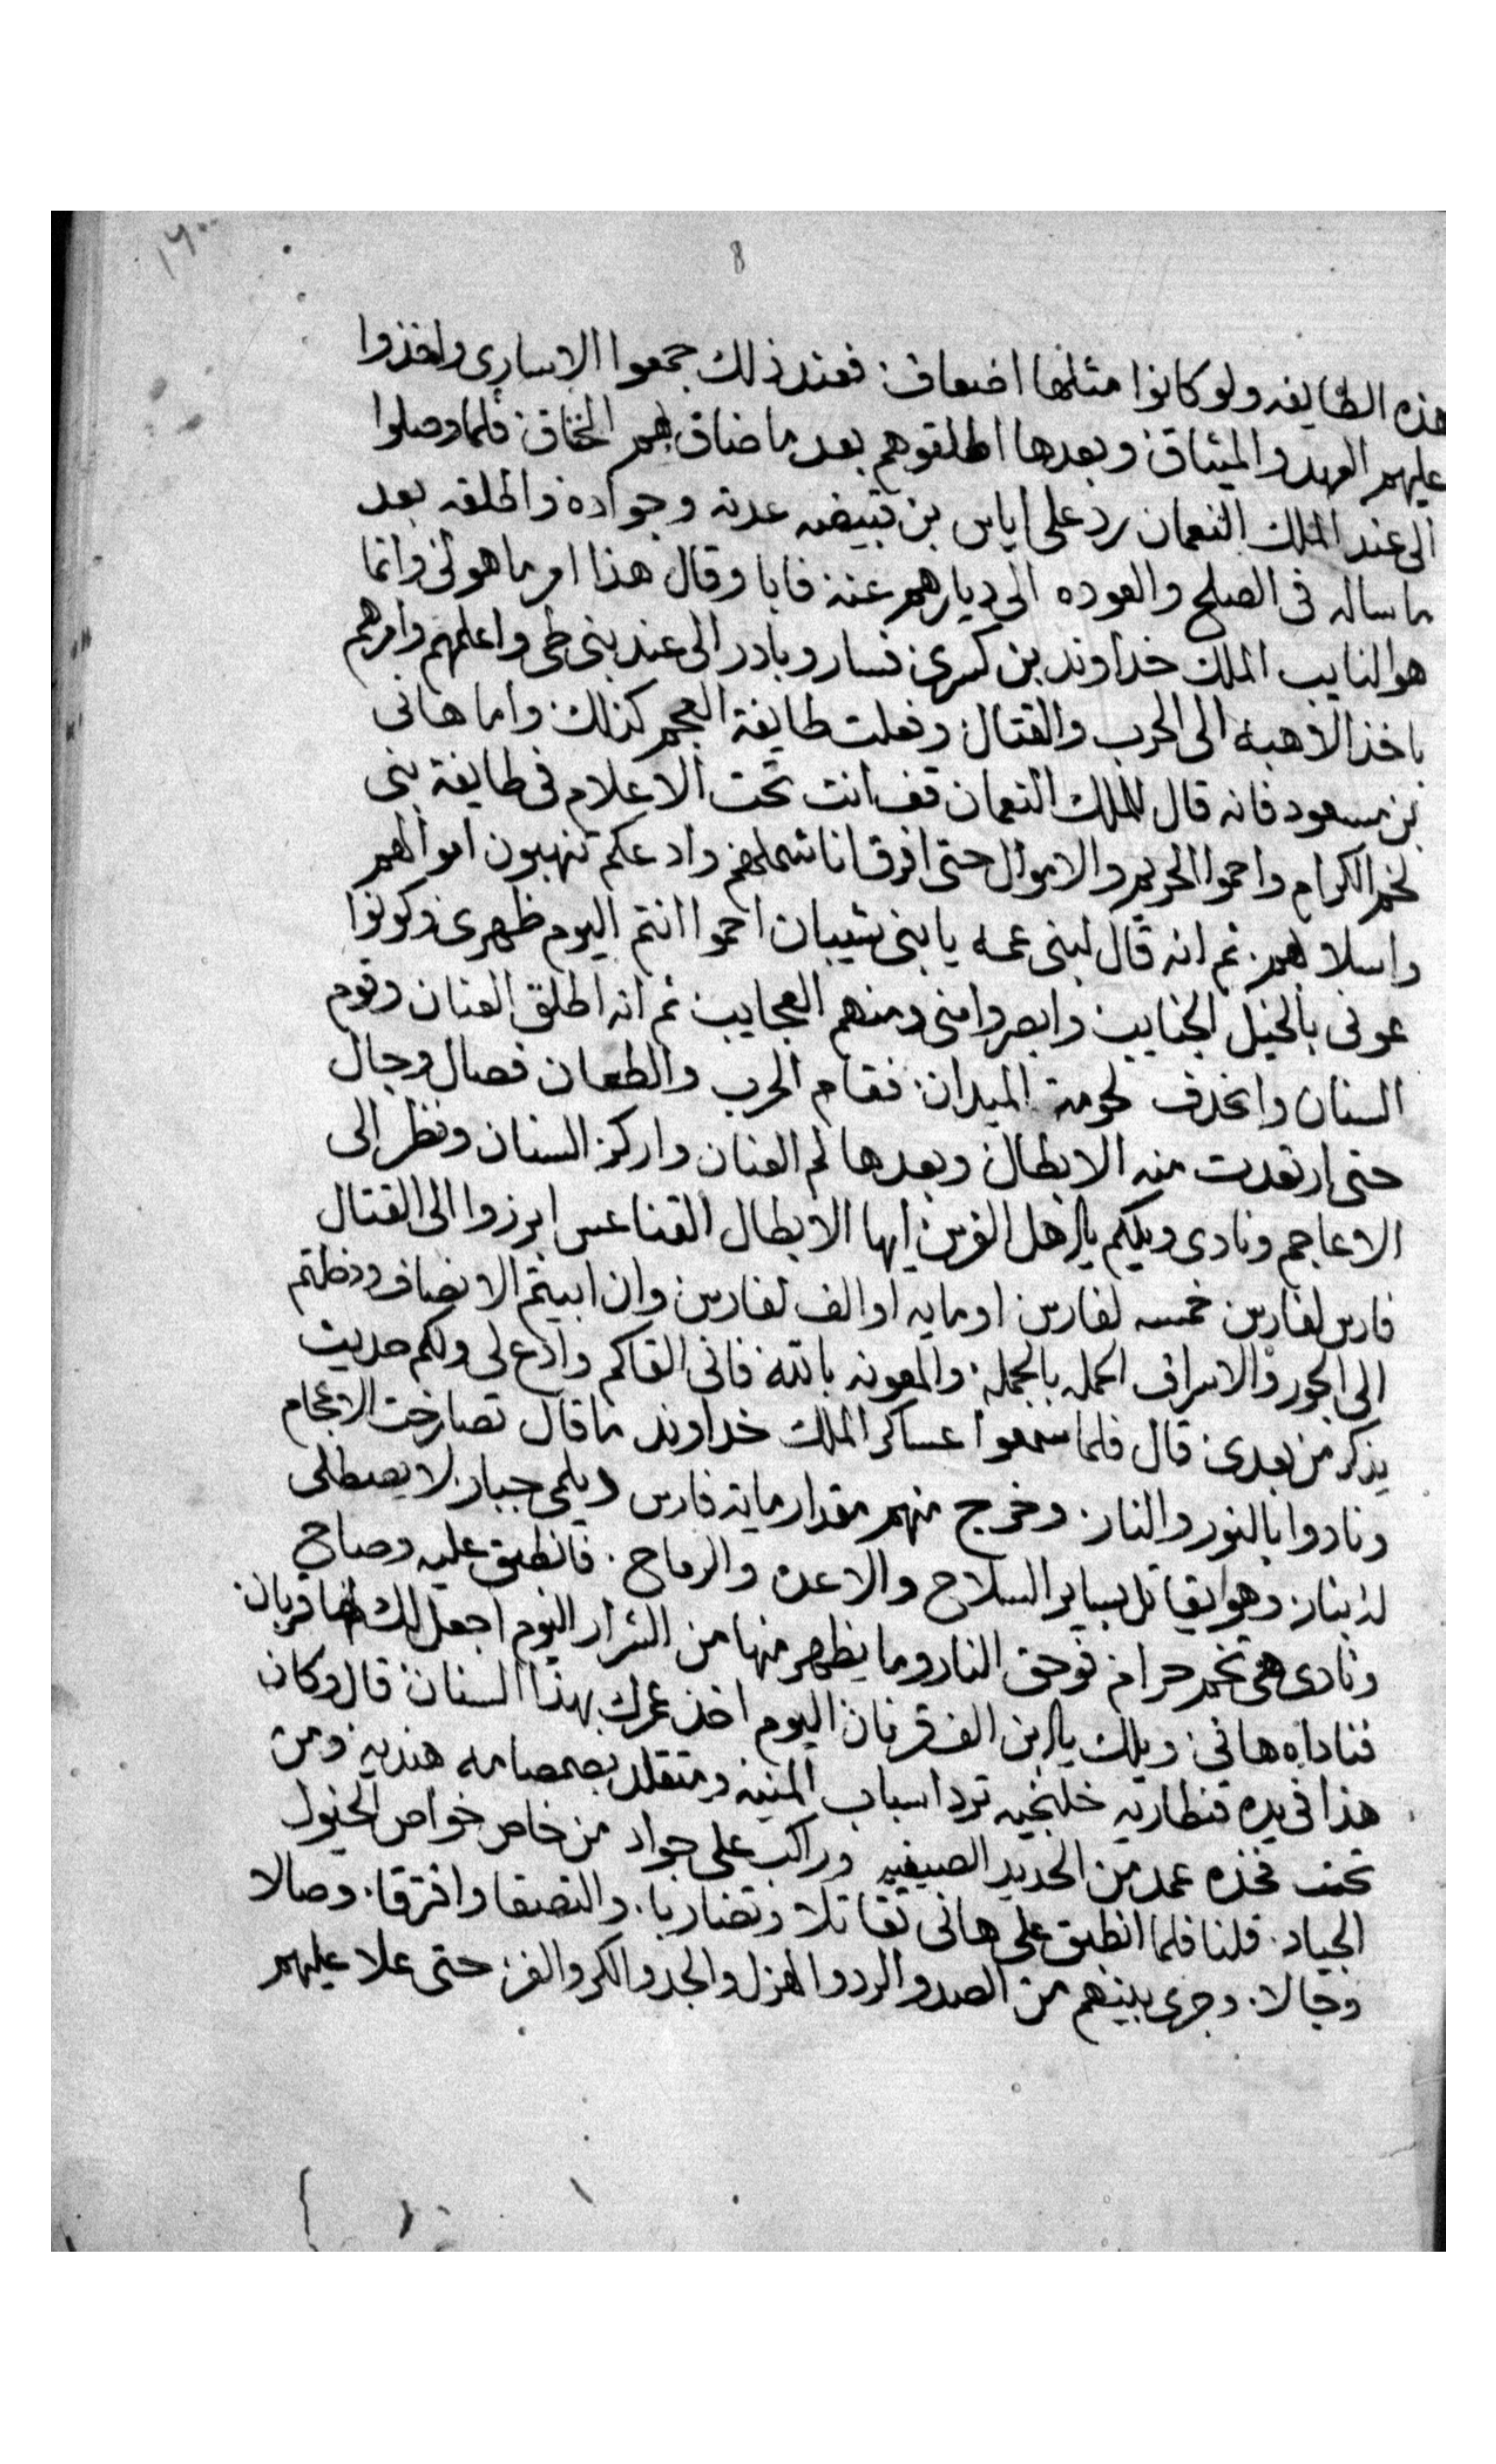 8
هذه الطايفه ولو كانوا مثلها اضعاف فعند ذلك جمعوا الاسارى واخذوا
عليهم العهد والميثاق وبعدها اطلقوهم بعد ما ضاق بهم الخناق فلما وصلوا
الى عند الملك النعمان رد على اياس بن قبيضه عدته وجواده واطلقه بعد
ما ساله فى الصلح والعوده الى ديارهم عنه فابا وقال هذا امر ما هو لى وانما
هو النايب الملك خداوند بن كسرى فسار وبادر الى عند بنى طى واعلمهم وامرهم
باخذ الاهبه الى الحرب والقتال وفعلت طايفة العجم كذلك واما هانى
بن مسعود فانه قال للملك النعمان قف انت تحت الاعلام فى طايفة بنى
لخم الكرام واحموا الحريم والاموال حتى افرق انا شملهم وادعكم تنهبون اموالهم
واسلابهم ثم انه قال لبنى عمه يا بنى شيبان احموا انتم اليوم ظهرى وكونوا
عونى بالخيل الجنايب وابصروا منى ومنهم العجايب ثم انه اطلق العنان وقوم
السنان وانحدف لحومة الميدان فقام الحرب والطعان فصال وجال
حتى ارتعدت منه الابطال وبعدها لم العنان واركز السنان ونظر الى
الاعاجم ونادى ويلكم يا اهل الفرس ايها الابطال القناعس ابرزوا الى القتال
فارس لفارس خمسه لفارس او مايه او الف لفارس وان ابيتم الانصاف وملتم
الى الجور والاسراف احمله بالجمله والمعونه بالله فانى القاكم وادع لى ولكم حديث
يذكر من بعدى قال فلما سمعوا عساكر الملك خداوند ما قال تصارخت الاعجام
ونادوا بالنور والنار وخرج منهم مقدار ماية فارس ديلمى جبار لا يصطلى
له بنار وهو يقاتل بساير السلاح والاعده والرماح فانطبق عليه وصاح
ونادى هى تخمر حرام فوحق النار وما يظهر منها من الشرار اليوم اجعل لك لها قربان
فناداه هانى ويلك يا ابن الف قرنان اليوم اخذ عمرك بهذا السنان قال وكان
هذا فى يده قنطاريه خلنجيه ترد اسباب المنيه ومتقلد بصمصامه هنديه ومن
تحت فخذه عمد من الحديد الصينيه وراكب على جواد من خاص خواص الخيول
الجياد قلنا فلما انطبق على هانى تقاتلا وتضاربا والتصقا وافترقا وصالا
وجالا وجرى بينهم من الصد والرد والهزل والجد والكر والفر حتى علا عليهم